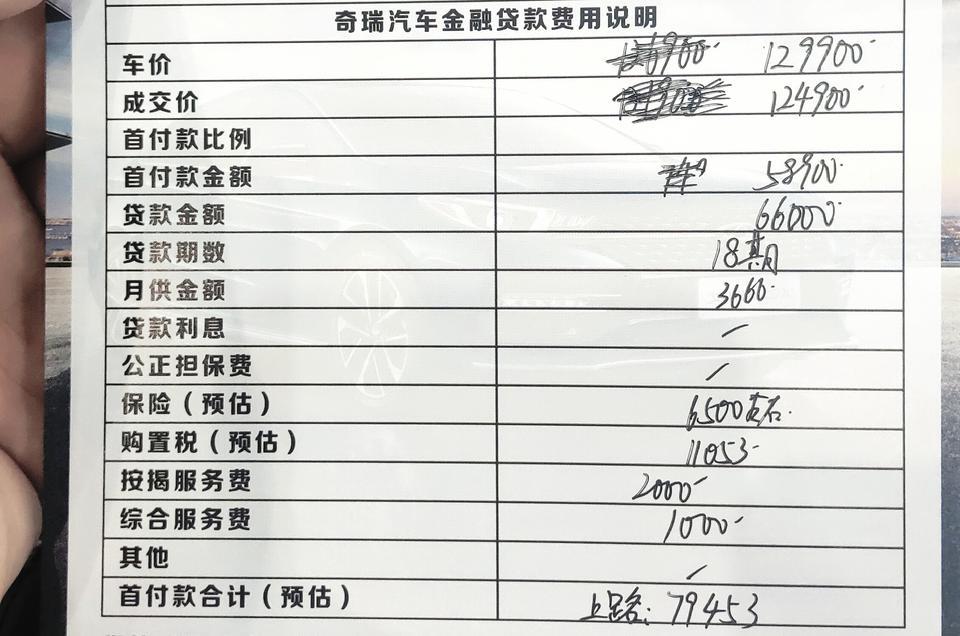 奇瑞汽车金融贷款费用说明
车价 129900
成交价 124900
首付款比例
首付款金额 58900
贷款金额 66000
贷款期数 18期
月供金额 3666
贷款利息 /
公正担保费 /
保险(预估) 6500左右
购置税(预估) 11053
按揭服务费 2000
综合服务费 1000
其他 /
首付款合计(预估) 上路客:79453